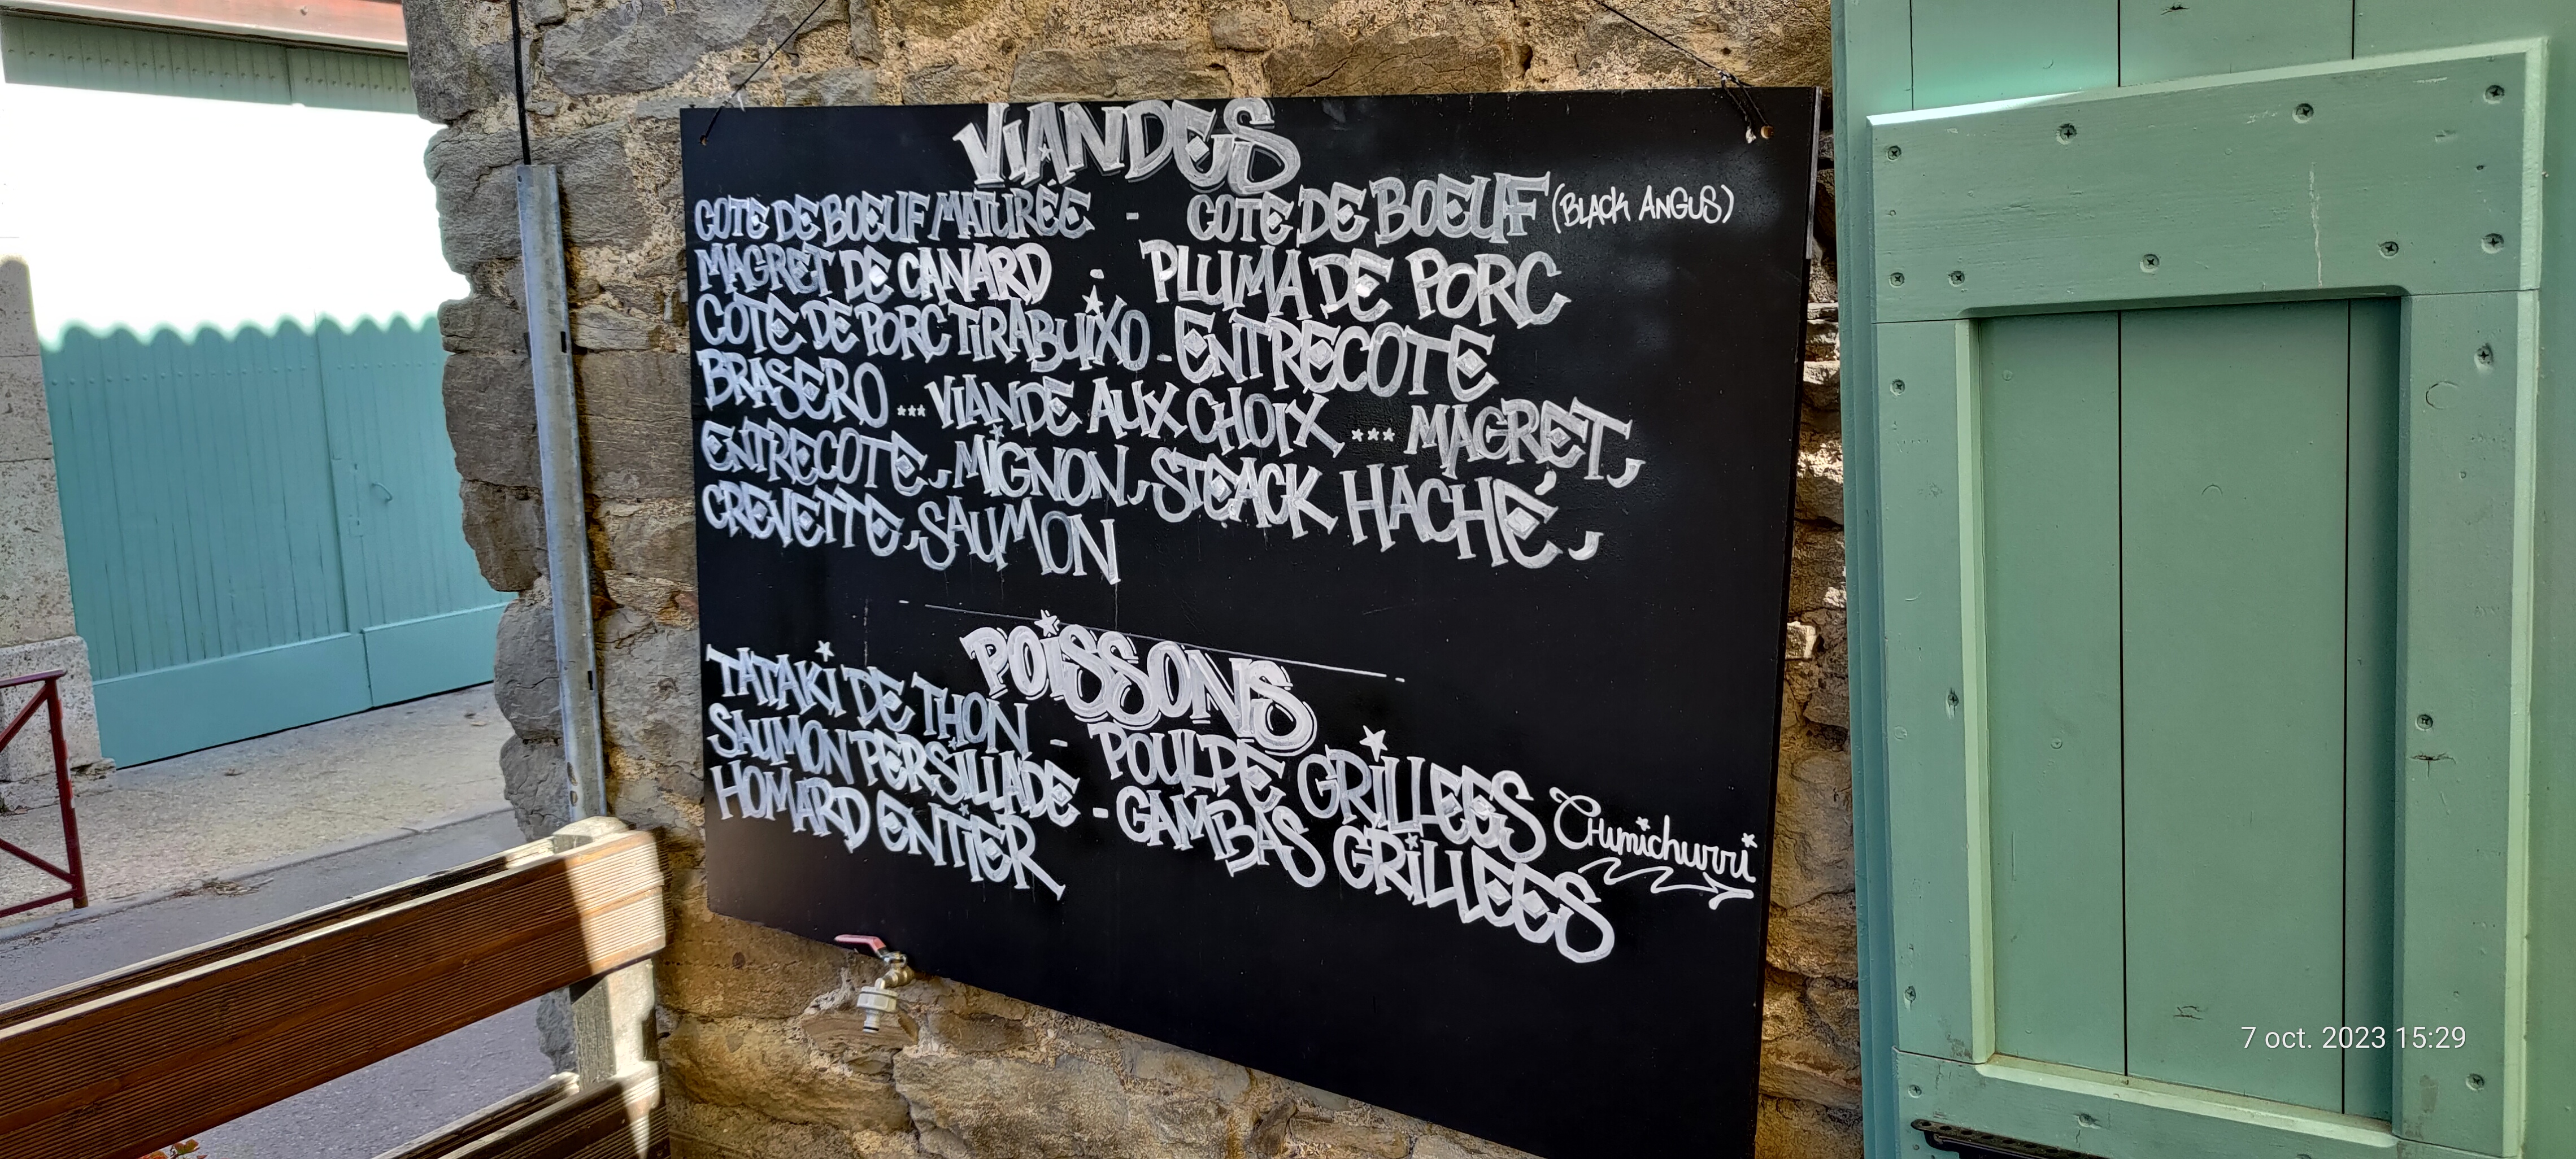 VIANDES
COTE DE BOEUF MATURÉE - COTE DE BOEUF (BLACK ANGUS)
MAGRET DE CANARD - PLUMA DE PORC
COTE DE PORC TIRABUIXO - ENTRECOTE
BRASERO ... VIANDE AUX CHOIX ... MAGRET,
ENTRECOTE, MIGNON, STEACK HACHÉ,
CREVETTE, SAUMON
POISSONS
TATAKI DE THON - POULPE GRILLEES Chimichurri
SAUMON PERSILLADE - GAMBAS GRILLEES
HOMARD ENTIER
7 oct. 2023 15:29